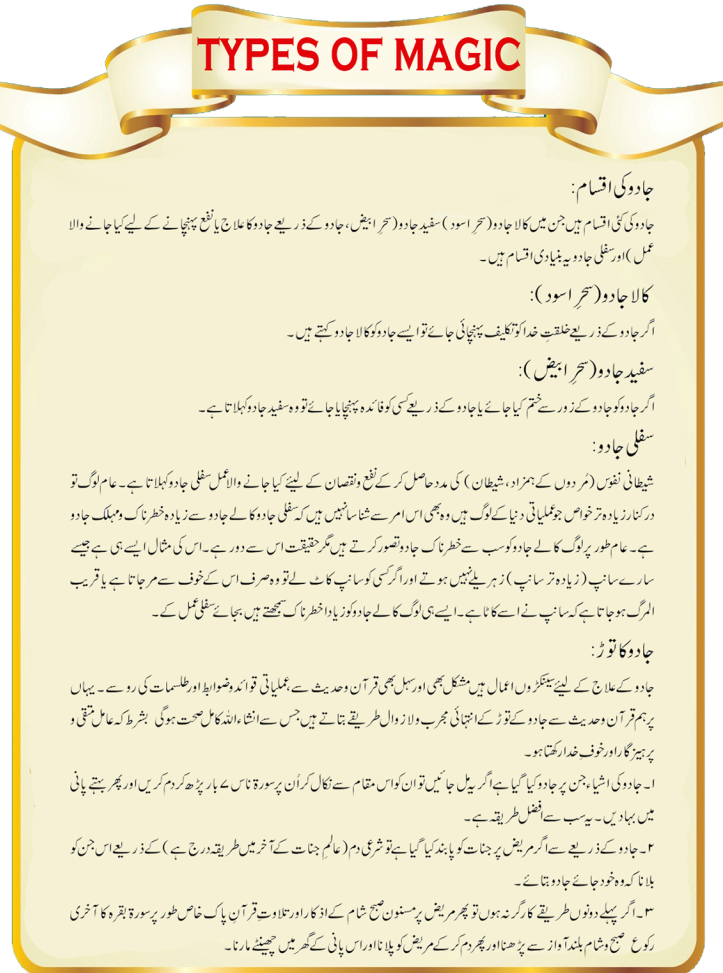 TYPES OF MAGIC
جادو کی اقسام:
جادو کی کئی اقسام ہیں جن میں کالا جادو (سحرِ اسود) سفید جادو (سحرِ ابیض، جادو کے ذریعے جادو کا علاج یا نفع پہنچانے کے لیے کیا جانے والا
عمل) اور سفلی جادو یہ بنیادی اقسام ہیں۔
کالا جادو (سحرِ اسود):
اگر جادو کے ذریعے خلقتِ خدا کو تکلیف پہنچائی جائے تو ایسے جادو کو کالا جادو کہتے ہیں۔
سفید جادو (سحرِ ابیض):
اگر جادو کو جادو کے زور سے ختم کیا جائے یا جادو کے ذریعے کسی کو فائدہ پہنچایا جائے تو وہ سفید جادو کہلاتا ہے۔
سفلی جادو:
شیطانی نفوس (مُردوں کے ہمزاد، شیطان) کی مدد حاصل کر کے نفع ونقصان کے لیئے کیا جانے والا عمل سفلی جادو کہلاتا ہے۔ عام لوگ تو
درکنار زیادہ تر خواص جو عملیاتی دنیا کے لوگ ہیں وہ بھی اس امر سے شناسا نہیں ہیں کہ سفلی جادو کالے جادو سے زیادہ خطرناک و مہلک جادو
ہے۔ عام طور پر لوگ کالے جادو کو سب سے خطرناک جادو تصور کرتے ہیں مگر حقیقت اس سے دور ہے۔ اس کی مثال ایسے ہی ہے جیسے
سارے سانپ (زیادہ تر سانپ) زہریلے نہیں ہوتے اور اگر کسی کو سانپ کاٹ لے تو وہ صرف اس کے خوف سے مر جاتا ہے یا قریب
المرگ ہو جاتا ہے کہ سانپ نے اسے کاٹا ہے۔ ایسے ہی لوگ کالے جادو کو زیادا خطرناک سمجھتے ہیں بجائے سفلی عمل کے۔
جادو کا توڑ:
جادو کے علاج کے لیئے سینکڑوں اعمال ہیں مشکل بھی اور سہل بھی قرآن و حدیث سے، عملیاتی قوائد و ضوابط اور طلسمات کی رو سے۔ یہاں
پر ہم قرآن و حدیث سے جادو کے توڑ کے انتہائی مجرب و لازوال طریقے بتاتے ہیں جس سے انشاءاللہ کامل صحت ہوگی بشرط کہ عامل متقی و
پرہیز گار اور خوفِ خدا رکھتا ہو۔
۱۔ جادو کی اشیاء جن پر جادو کیا گیا ہے اگر یہ مِل جائیں تو ان کو اس مقام سے نکال کر اُن پر سورۃ ناس ۷ بار پڑھ کر دم کریں اور پھر بہتے پانی
میں بہا دیں۔ یہ سب سے افضل طریقہ ہے۔
۲۔ جادو کے ذریعے سے اگر مریض پر جنات کو پابند کیا گیا ہے تو شرعی دم (عالمِ جنات کے آخر میں طریقہ درج ہے) کے ذریعے اس جن کو
بلانا کہ وہ خود جائے جادو بتائے۔
۳۔ اگر پہلے دونوں طریقے کارگر نہ ہوں تو پھر مریض پر مسنون صبح شام کے اذکار اور تلاوتِ قرآنِ پاک خاص طور پر سورۃ بقرہ کا آخری
رکوع صبح و شام بلند آواز سے پڑھنا اور پھر دم کر کے مریض کو پلانا اور اس پانی کے گھر میں چھینٹے مارنا۔